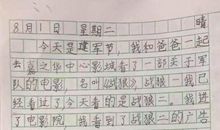 8月1日 星期二 晴
今天是建军节,我和爸爸一起
去嘉之华中心影城看了一部关于军
队的电影,名叫《战狼》,战狼一我已
经看过了今天看的是战狼二。我进
了电影院,我看到了战狼二的广告